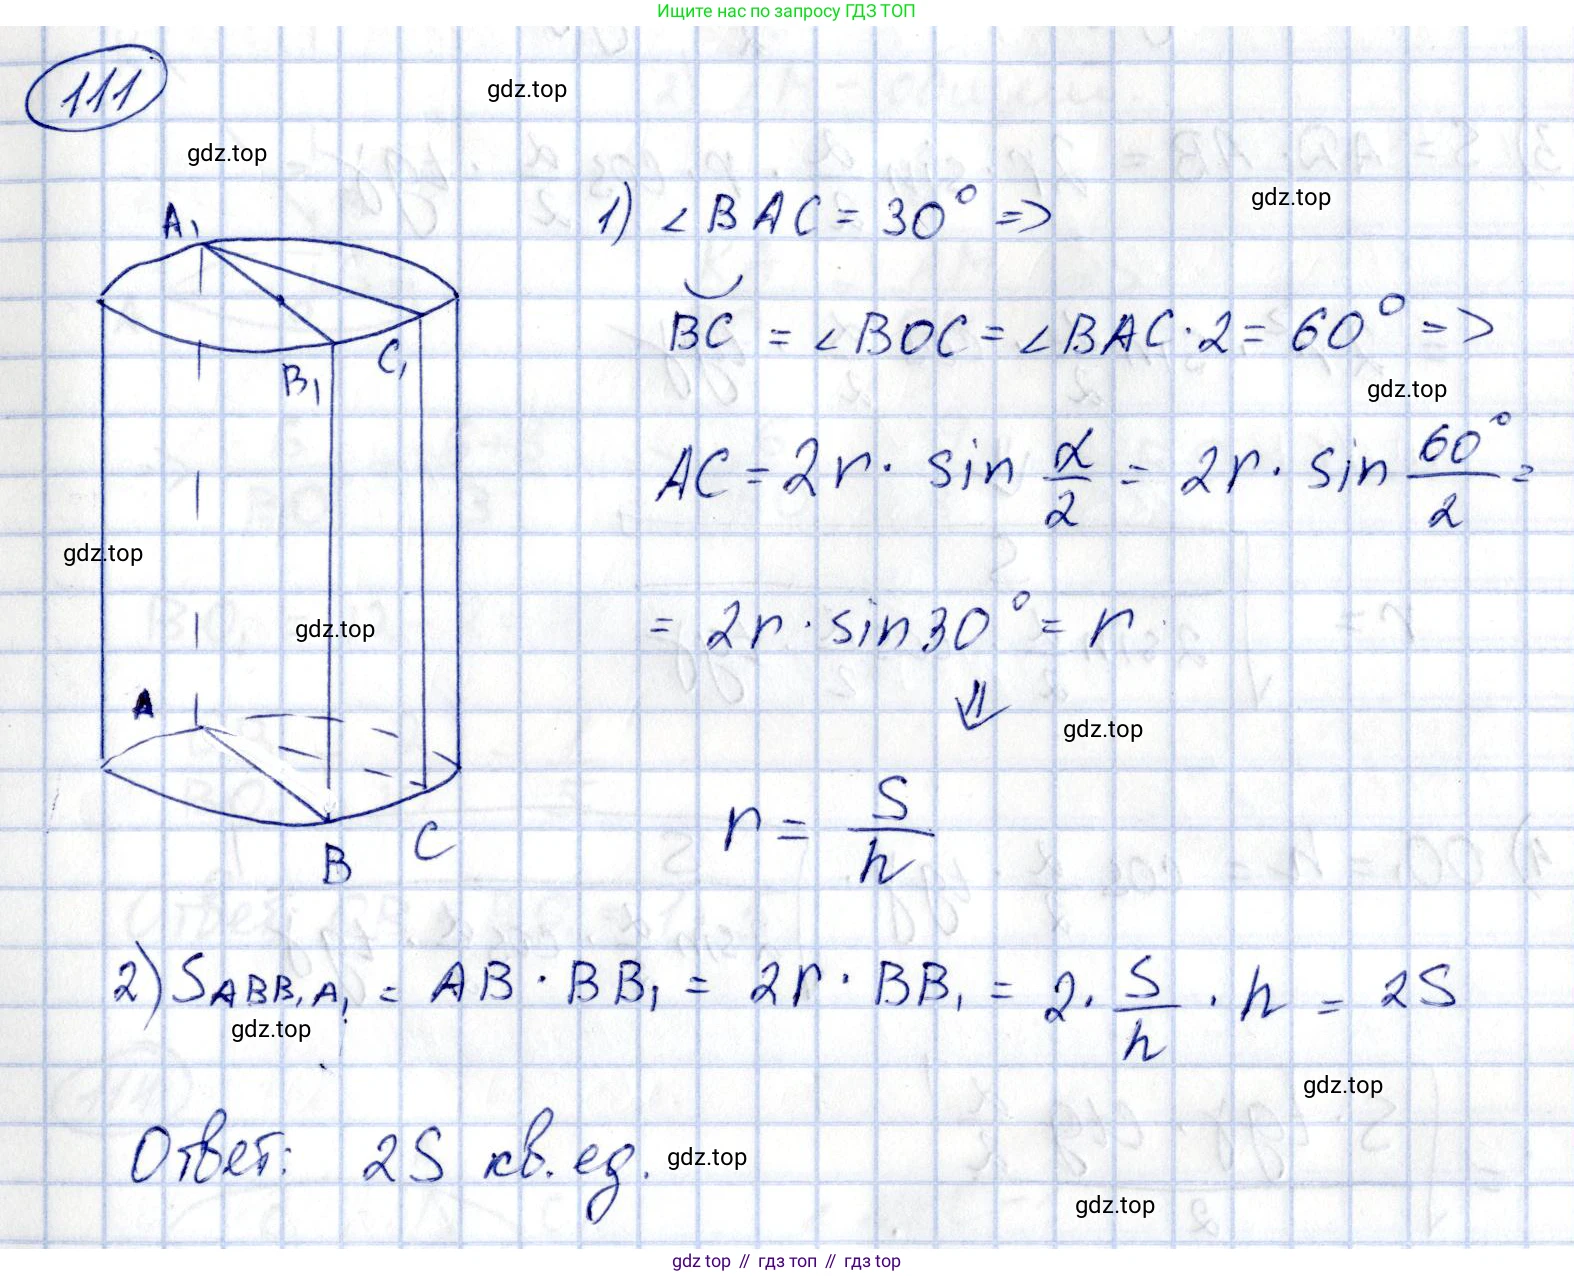 Ищите нас по запросу ГДЗ ТОП
111
gdz.top
gdz.top
1) ∠BAC = 30° =>
gdz.top
A₁
B₁
C₁
◡BC = ∠BOC = ∠BAC · 2 = 60° =>
gdz.top
AC = 2r · sin α/2 = 2r · sin 60°/2 =
gdz.top
= 2r · sin30° = r
gdz.top
⇓
gdz.top
A
B
C
r = S/h
2) S ABB₁A₁ = AB · BB₁ = 2r · BB₁ = 2 · S/h · h = 2S
gdz.top
gdz.top
Ответ: 2S кв. ед.
gdz.top
gdz.top
gdz.top // гдз топ // gdz.top